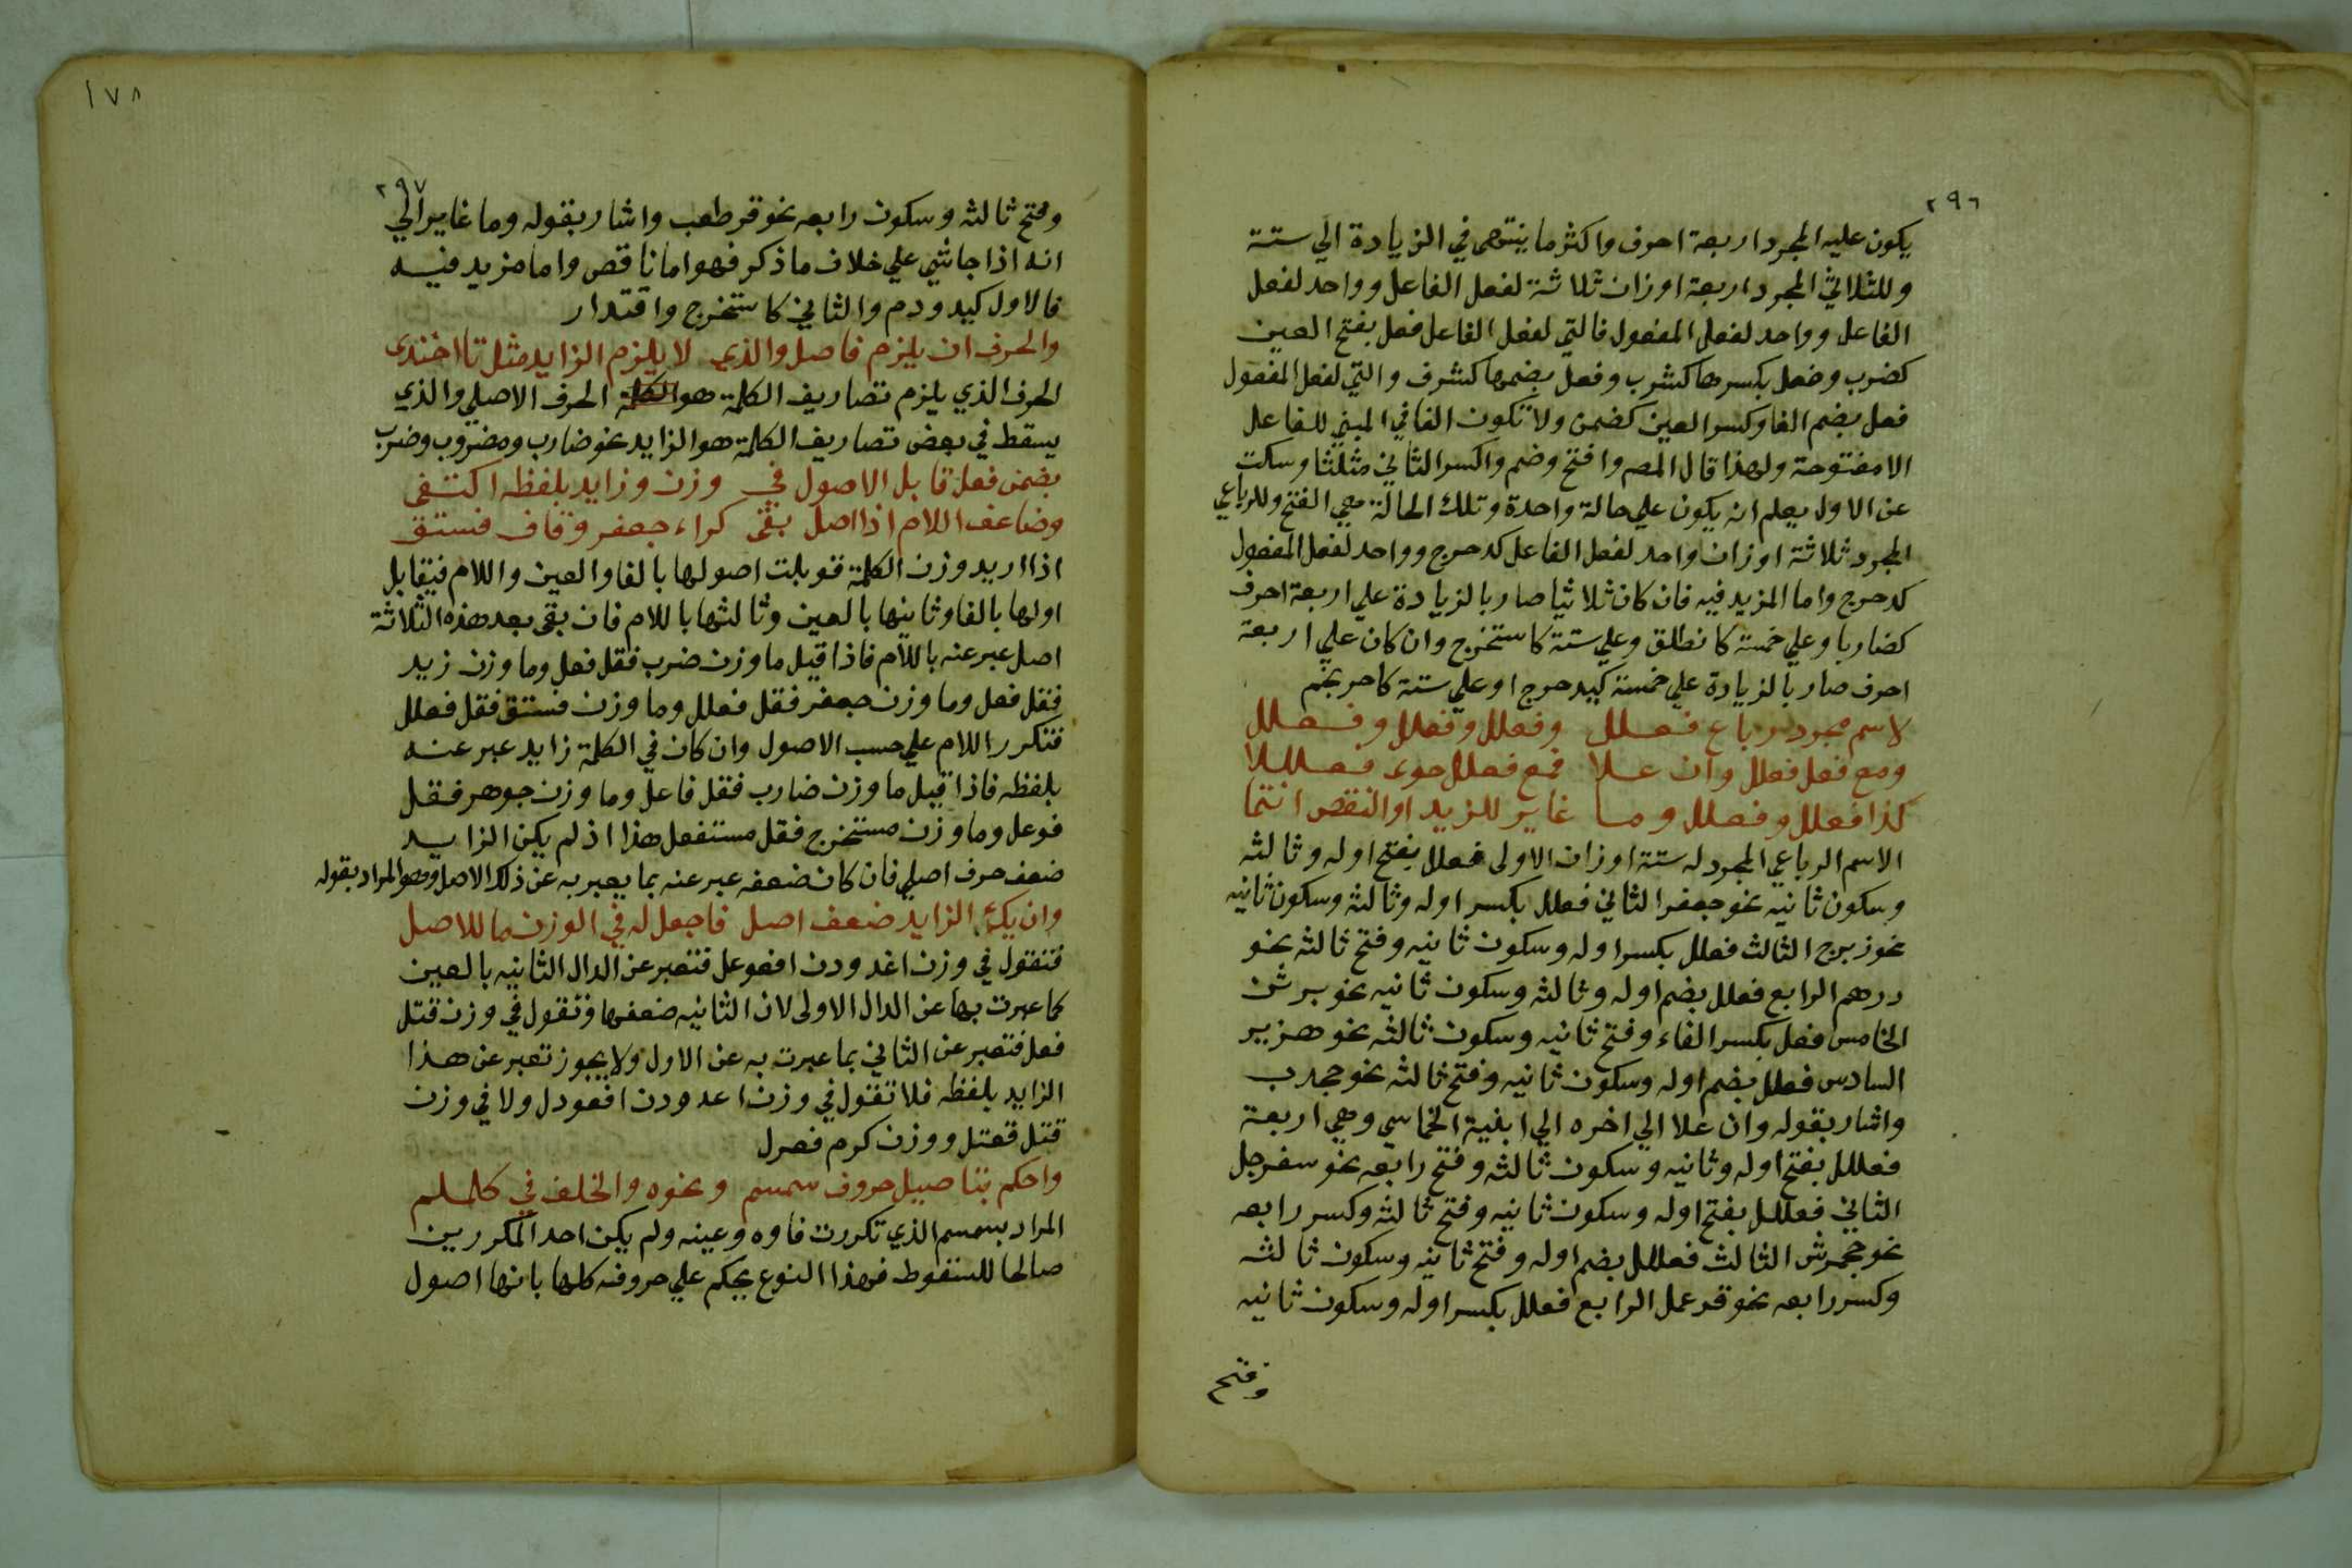 ٢٩٦
يكون عليه المجرد اربعة احرف واكثر ما ينتهى في الزيادة الي ستة
وللثلاثي المجرد اربعة اوزان ثلاثة لفعل الفاعل وواحد لفعل
الفاعل وواحد لفعل المفعول فالتي لفعل الفاعل فعل بفتح العين
كضرب وفعل بكسرها كشرب وفعل بضمها كشرف والتي لفعل المفعول
فعل بضم الفا وكسر العين كضمن ولا تكون الفا في المبني للفاعل
الا مفتوحة ولهذا قال المصم وافتح وضم واكسر الثاني مثلثا وسكت
عن الاول يعلم انه يكون علي حالة واحدة وتلك الحالة هي الفتح وللرباعي
المجرد ثلاثة اوزان واحد لفعل الفاعل كدحرج وواحد لفعل المفعول
كدحرج واما المزيد فيه فان كان ثلاثيا صار بالزيادة علي اربعة احرف
كضارب او علي خمسة كانطلق وعلي ستة كاستخرج وان كان علي اربعة
احرف صار بالزيادة علي خمسة كيدحرج او علي ستة كاحرنجم
لاسم مجرد رباع فعلل وفعلل وفعلل وفعلل
ومع فعل فعلل وان علا فمع فعلل حوى فعللا
كذا فعلل وفعلل وما غاير للزيد او النقص انتما
الاسم الرباعي المجرد له ستة اوزان الاولى فعلل بفتح اوله وثالثه
وسكون ثانيه نحو جعفر الثاني فعلل بكسر اوله وثالثه وسكون ثانيه
نحو زبرج الثالث فعلل بكسر اوله وسكون ثانيه وفتح ثالثه نحو
درهم الرابع فعلل بضم اوله وثالثه وسكون ثانيه نحو برثن
الخامس فعل بكسر الفاء وفتح ثانيه وسكون ثالثه نحو هزبر
السادس فعلل بضم اوله وسكون ثانيه وفتح ثالثه نحو جحدب
واشار بقوله وان علا الي اخره الي ابنية الخماسي وهي اربعة
فعلل بفتح اوله وثانيه وسكون ثالثه وفتح رابعه نحو سفرجل
الثاني فعللل بفتح اوله وسكون ثانيه وفتح ثالثه وكسر رابعه
نحو جحمرش الثالث فعللل بضم اوله وفتح ثانيه وسكون ثالثه
وكسر رابعه نحو قدعمل الرابع فعلل بكسر اوله وسكون ثانيه
وفتح
١٧٨
٢٩٧
وفتح ثالثه وسكون رابعه نحو قرطعب واشار بقوله وما غاير الي
انه اذا جا شي علي خلاف ما ذكر فهو اما ناقص واما مزيد فيه
فالاول كيد ودم والثاني كاستخرج واقتدار
والحرف ان يلزم فاصل والذي لا يلزم الزايد مثل تا احتذى
الحرف الذي يلزم تصاريف الكلمة هو الكلمة الحرف الاصلي والذي
يسقط في بعض تصاريف الكلمة هو الزايد نحو ضارب ومضروب وضرب
بضمن فعل قابل الاصول في وزن وزايد بلفظه اكتفى
وضاعف اللام اذا اصل بقى كراء جعفر وقاف فستق
اذا اريد وزن الكلمة قوبلت اصولها بالفا والعين واللام فيقابل
اولها بالفا وثانيها بالعين وثالثها باللام فان بقى بعد هذه الثلاثة
اصل عبر عنه باللام فاذا قيل ما وزن ضرب فقل فعل وما وزن زيد
فقل فعل وما وزن جعفر فقل فعلل وما وزن فستق فقل فعلل
فتكرر اللام علي حسب الاصول وان كان في الكلمة زايد عبر عنه
بلفظه فاذا قيل ما وزن ضارب فقل فاعل وما وزن جوهر فقل
فوعل وما وزن مستخرج فقل مستفعل هذا اذ لم يكن الزايد
ضعف حرف اصلي فان كان ضعفه عبر عنه بما يعبر به عن ذلك الاصل وهو المراد بقوله
وان يك الزايد ضعف اصل فاجعل له في الوزن ما للاصل
فتقول في وزن اغدودن افعوعل فتعبر عن الدال الثانيه بالعين
كما عبرت بها عن الدال الاولى لان الثانيه ضعفها وتقول في وزن قتل
فعل فتعبر عن الثاني بما عبرت به عن الاول ولا يجوز تعبر عن هذا
الزايد بلفظه فلا تقول في وزن اعدودن افعودل ولا في وزن
قتل فعتل ووزن كرم فعرل
واحكم بتاصيل حروف سمسم ونحوه والخلف في كلملم
المراد بسمسم الذي تكررت فاوه وعينه ولم يكن احد المكررين
صالحا للسقوط فهذا النوع يحكم علي حروفه كلها بانها اصول